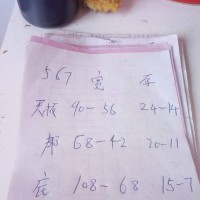 567 宽 高
天板 90-56 24-14
邦 68-42 20-11
底 108-68 15-7